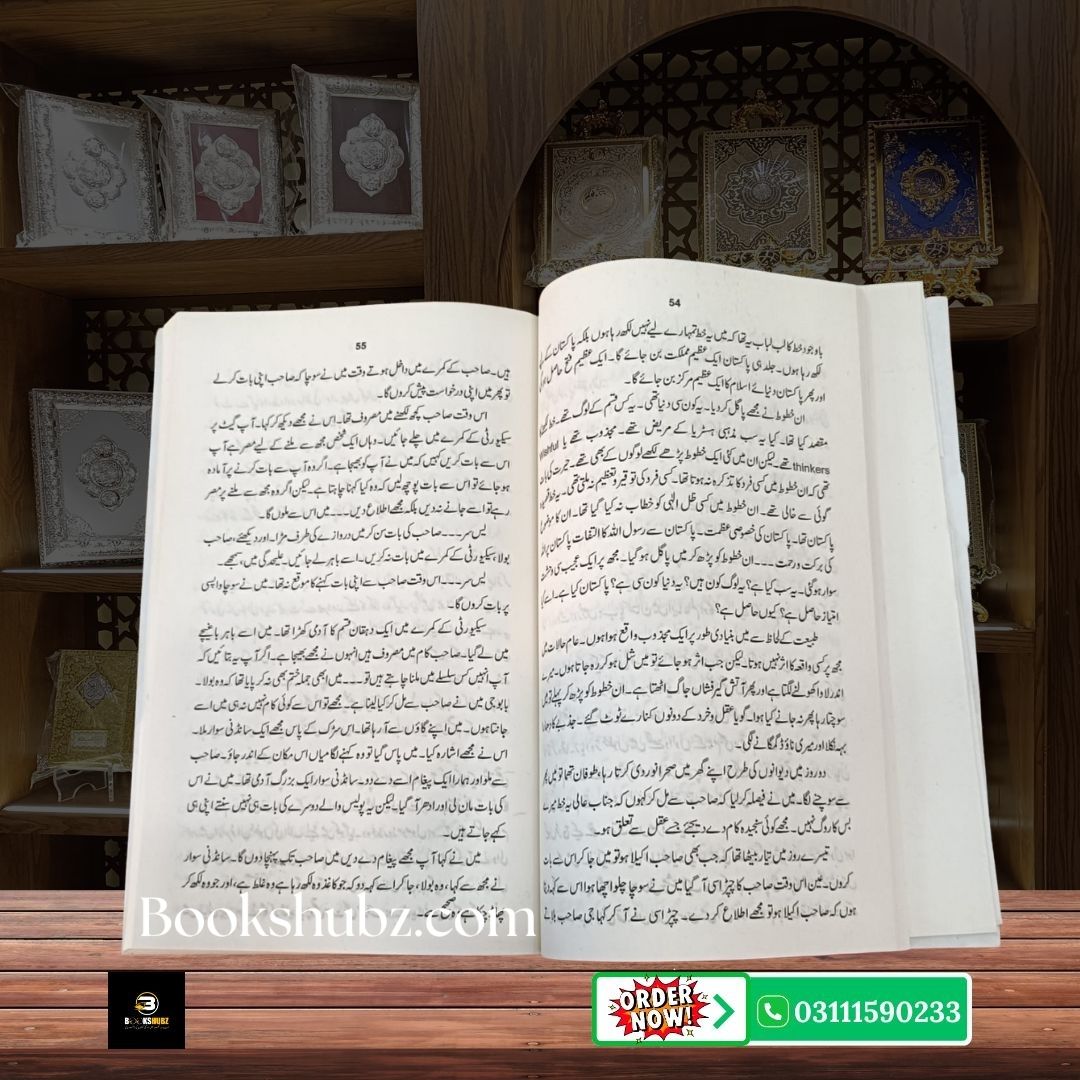 54
باوجود خط کا لب لباب یہ تھا کہ میں یہ خط تمہارے لیے نہیں لکھ رہا ہوں بلکہ پاکستان کے لیے
لکھ رہا ہوں۔ جلد ہی پاکستان ایک عظیم مملکت بن جائے گا۔ ایک عظیم فتح حاصل ہو
اور پھر پاکستان دنیائے اسلام کا ایک عظیم مرکز بن جائے گا۔
ان خطوط نے مجھے پاگل کر دیا۔ یہ کون سی دنیا تھی۔ یہ کس قسم کے لوگ تھے۔ خط لکھنے کا
مقصد کیا تھا۔ کیا یہ سب مذہبی ہسٹریا کے مریض تھے۔ مجذوب تھے یا Wishful
thinkers تھے۔ لیکن ان میں کئی ایک خطوط پڑھے لکھے لوگوں کے بھی تھے۔ حیرت کی بات
تھی کہ ان خطوط میں کسی فرد کا تذکرہ نہ ہوتا تھا۔ کسی فرد کی توقیر و تعظیم نہ ملتی تھی۔ یہ خط
گوئی سے خالی تھے۔ ان خطوط میں کسی ظل الہٰی کو خطاب نہ کیا گیا تھا۔ ان کا موضوع
پاکستان تھا۔ پاکستان کی خصوصی عظمت۔ پاکستان سے رسول اللہ کا التفات پاکستان پر اللہ
کی برکت و رحمت --- ان خطوط کو پڑھ کر میں پاگل ہو گیا۔ مجھ پر ایک عجیب سی وحشت
سوار ہو گئی۔ یہ سب کیا ہے؟ یہ لوگ کون ہیں؟ یہ دنیا کون سی ہے؟ پاکستان کیا ہے۔ اسے کیا
امتیاز حاصل ہے؟ کیوں حاصل ہے؟
طبیعت کے لحاظ سے میں بنیادی طور پر ایک مجذوب واقع ہوا ہوں۔ عام حالات میں
مجھ پر کسی واقعہ کا اثر نہیں ہوتا۔ لیکن جب اثر ہو جائے تو میں شل ہو کر رہ جاتا ہوں۔ میرے
اندر لاوا کھولنے لگتا ہے اور پھر آتش گیر فشاں جاگ اٹھتا ہے۔ ان خطوط کو پڑھ کر پہلے تو میں
سوچتا رہا پھر نہ جانے کیا ہوا۔ گویا عقل و خرد کے دونوں کنارے ٹوٹ گئے۔ جذبے کا دھارا
بہہ نکلا اور میری ناؤ ڈگمگانے لگی۔
دو روز میں دیوانوں کی طرح اپنے گھر میں صحرا نوردی کرتا رہا، طوفان تھما تو میں پھر
سے سوچنے لگا۔ میں نے فیصلہ کر لیا کہ صاحب سے مل کر کہوں کہ جناب عالی یہ خط میرے
بس کا روگ نہیں۔ مجھے کوئی سنجیدہ کام دے دیجئے جسے عقل سے تعلق ہو۔
تیسرے روز میں تیار بیٹھا تھا کہ جب بھی صاحب اکیلا ہو تو میں جا کر اس سے بات
کروں۔ عین اس وقت صاحب کا چپڑاسی آ گیا میں نے سوچا چلو اچھا ہوا اسے کہتا
ہوں کہ صاحب اکیلا ہو تو مجھے اطلاع کر دے۔ چپڑاسی نے آ کر کہا جی صاحب بلاتے
55
ہیں۔ صاحب کے کمرے میں داخل ہوتے وقت میں نے سوچا کہ صاحب اپنی بات کر لے
تو پھر میں اپنی درخواست پیش کروں گا۔
اس وقت صاحب کچھ لکھنے میں مصروف تھا۔ اس نے مجھے دیکھ کر کہا۔ آپ گیٹ پر
سیکیورٹی کے کمرے میں چلے جائیں۔ وہاں ایک شخص مجھ سے ملنے کے لیے مصر ہے آپ
اس سے بات کریں کہیں کہ میں نے آپ کو بھیجا ہے۔ اگر وہ آپ سے بات کرنے پر آمادہ
ہو جائے تو اس سے بات پوچھ لیں کہ وہ کیا کہنا چاہتا ہے۔ لیکن اگر وہ مجھ سے ملنے پر مصر
رہے تو اسے جانے نہ دیں بلکہ مجھے اطلاع دیں --- میں اس سے ملوں گا۔
یس سر --- صاحب کی بات سن کر میں دروازے کی طرف مڑا۔ اور دیکھئے، صاحب
بولا، سیکیورٹی کے کمرے میں بات نہ کریں۔ اسے باہر لے جائیں۔ علیحدگی میں، سمجھے۔
یس سر --- اس وقت صاحب سے اپنی بات کہنے کا موقع نہ تھا۔ میں نے سوچا واپسی
پر بات کروں گا۔
سیکیورٹی کے کمرے میں ایک دہقان قسم کا آدمی کھڑا تھا۔ میں اسے باہر باغیچے
میں لے گیا۔ صاحب کام میں مصروف ہیں انہوں نے مجھے بھیجا ہے۔ اگر آپ یہ بتائیں کہ
آپ انہیں کس سلسلے میں ملنا چاہتے ہیں تو --- میں ابھی جملہ ختم بھی نہ کر پایا تھا کہ وہ بولا۔
بابو جی میں نے صاحب سے مل کر کیا لینا ہے۔ مجھے تو اس سے کوئی کام نہیں نہ ہی میں اسے
جانتا ہوں۔ میں اپنے گاؤں سے آ رہا تھا۔ اس سڑک کے پاس مجھے ایک سانڈنی سوار ملا۔
اس نے مجھے اشارہ کیا۔ میں پاس گیا تو وہ کہنے لگا میاں اس مکان کے اندر جاؤ۔ صاحب
سے ملو اور ہمارا ایک پیغام اسے دے دو۔ سانڈنی سوار ایک بزرگ آدمی تھا۔ میں نے اس
کی بات مان لی اور ادھر آ گیا۔ لیکن یہ پولیس والے دوسرے کی بات ہی نہیں سنتے اپنی ہی
کہے جاتے ہیں۔
میں نے کہا آپ مجھے پیغام دے دیں میں صاحب تک پہنچا دوں گا۔ سانڈنی سوار
نے مجھ سے کہا، وہ بولا، جا کر اسے کہہ دو کہ جو کاغذ وہ لکھ رہا ہے وہ غلط ہے، اور جو وہ لکھ کر
Bookshubz.com
BOOKSHUBZ
ORDER NOW!
03111590233